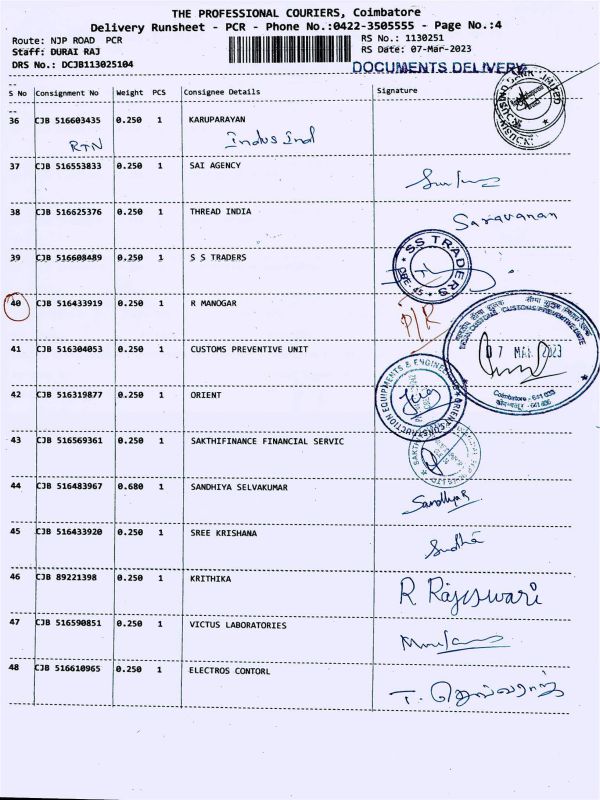 THE PROFESSIONAL COURIERS, Coimbatore
Delivery Runsheet - PCR - Phone No.:0422-3505555 - Page No.:4
Route: NJP ROAD PCR
RS No.: 1130251
Staff: DURAI RAJ
RS Date: 07-Mar-2023
DRS No.: DCJB113025104
DOCUMENTS DELIVERY
S No Consignment No Weight PCS Consignee Details Signature
36 CJB 516603435 0.250 1 KARUPARAYAN
RTN IndusInd
37 CJB 516553833 0.250 1 SAI AGENCY
38 CJB 516625376 0.250 1 THREAD INDIA
Saravanan
39 CJB 516608489 0.250 1 S S TRADERS
SS TRADERS
CBE-45
40 CJB 516433919 0.250 1 R MANOGAR
P/R
41 CJB 516304053 0.250 1 CUSTOMS PREVENTIVE UNIT
07 MAR 2023
Coimbatore - 641 033
42 CJB 516319877 0.250 1 ORIENT
43 CJB 516569361 0.250 1 SAKTHIFINANCE FINANCIAL SERVIC
44 CJB 516483967 0.680 1 SANDHIYA SELVAKUMAR
Sandhya
45 CJB 516433920 0.250 1 SREE KRISHANA
Sudha
46 CJB 89221398 0.250 1 KRITHIKA
R Rajeswari
47 CJB 516590851 0.250 1 VICTUS LABORATORIES
48 CJB 516610965 0.250 1 ELECTROS CONTORL